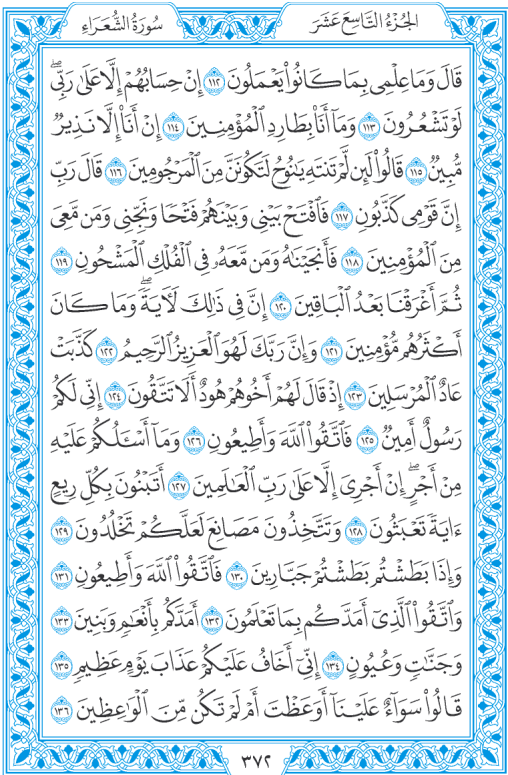 الجُزْءُ التَّاسِعَ عَشَرَ
سُورَةُ الشُّعَرَاءِ
قَالَ وَمَا عِلْمِى بِمَا كَانُوا۟ يَعْمَلُونَ ١١٢ إِنْ حِسَابُهُمْ إِلَّا عَلَىٰ رَبِّىۖ
لَوْ تَشْعُرُونَ ١١٣ وَمَآ أَنَا۠ بِطَارِدِ الْمُؤْمِنِينَ ١١٤ إِنْ أَنَا۠ إِلَّا نَذِيرٌ
مُّبِينٌ ١١٥ قَالُوا۟ لَئِن لَّمْ تَنتَهِ يَٰنُوحُ لَتَكُونَنَّ مِنَ الْمَرْجُومِينَ ١١٦ قَالَ رَبِّ
إِنَّ قَوْمِى كَذَّبُونِ ١١٧ فَافْتَحْ بَيْنِى وَبَيْنَهُمْ فَتْحًا وَنَجِّنِى وَمَن مَّعِىَ
مِنَ الْمُؤْمِنِينَ ١١٨ فَأَنجَيْنَٰهُ وَمَن مَّعَهُۥ فِى الْفُلْكِ الْمَشْحُونِ ١١٩
ثُمَّ أَغْرَقْنَا بَعْدُ الْبَاقِينَ ١٢٠ إِنَّ فِى ذَٰلِكَ لَءَايَةًۖ وَمَا كَانَ
أَكْثَرُهُم مُّؤْمِنِينَ ١٢١ وَإِنَّ رَبَّكَ لَهُوَ الْعَزِيزُ الرَّحِيمُ ١٢٢ كَذَّبَتْ
عَادٌ الْمُرْسَلِينَ ١٢٣ إِذْ قَالَ لَهُمْ أَخُوهُمْ هُودٌ أَلَا تَتَّقُونَ ١٢٤ إِنِّى لَكُمْ
رَسُولٌ أَمِينٌ ١٢٥ فَاتَّقُوا۟ اللَّهَ وَأَطِيعُونِ ١٢٦ وَمَآ أَسْـَٔلُكُمْ عَلَيْهِ
مِنْ أَجْرٍۖ إِنْ أَجْرِىَ إِلَّا عَلَىٰ رَبِّ الْعَٰلَمِينَ ١٢٧ أَتَبْنُونَ بِكُلِّ رِيعٍ
ءَايَةً تَعْبَثُونَ ١٢٨ وَتَتَّخِذُونَ مَصَانِعَ لَعَلَّكُمْ تَخْلُدُونَ ١٢٩
وَإِذَا بَطَشْتُم بَطَشْتُمْ جَبَّارِينَ ١٣٠ فَاتَّقُوا۟ اللَّهَ وَأَطِيعُونِ ١٣١
وَاتَّقُوا۟ الَّذِىٓ أَمَدَّكُم بِمَا تَعْلَمُونَ ١٣٢ أَمَدَّكُم بِأَنْعَٰمٍ وَبَنِينَ ١٣٣
وَجَنَّٰتٍ وَعُيُونٍ ١٣٤ إِنِّىٓ أَخَافُ عَلَيْكُمْ عَذَابَ يَوْمٍ عَظِيمٍ ١٣٥
قَالُوا۟ سَوَآءٌ عَلَيْنَآ أَوَعَظْتَ أَمْ لَمْ تَكُن مِّنَ الْوَٰعِظِينَ ١٣٦
٣٧٢